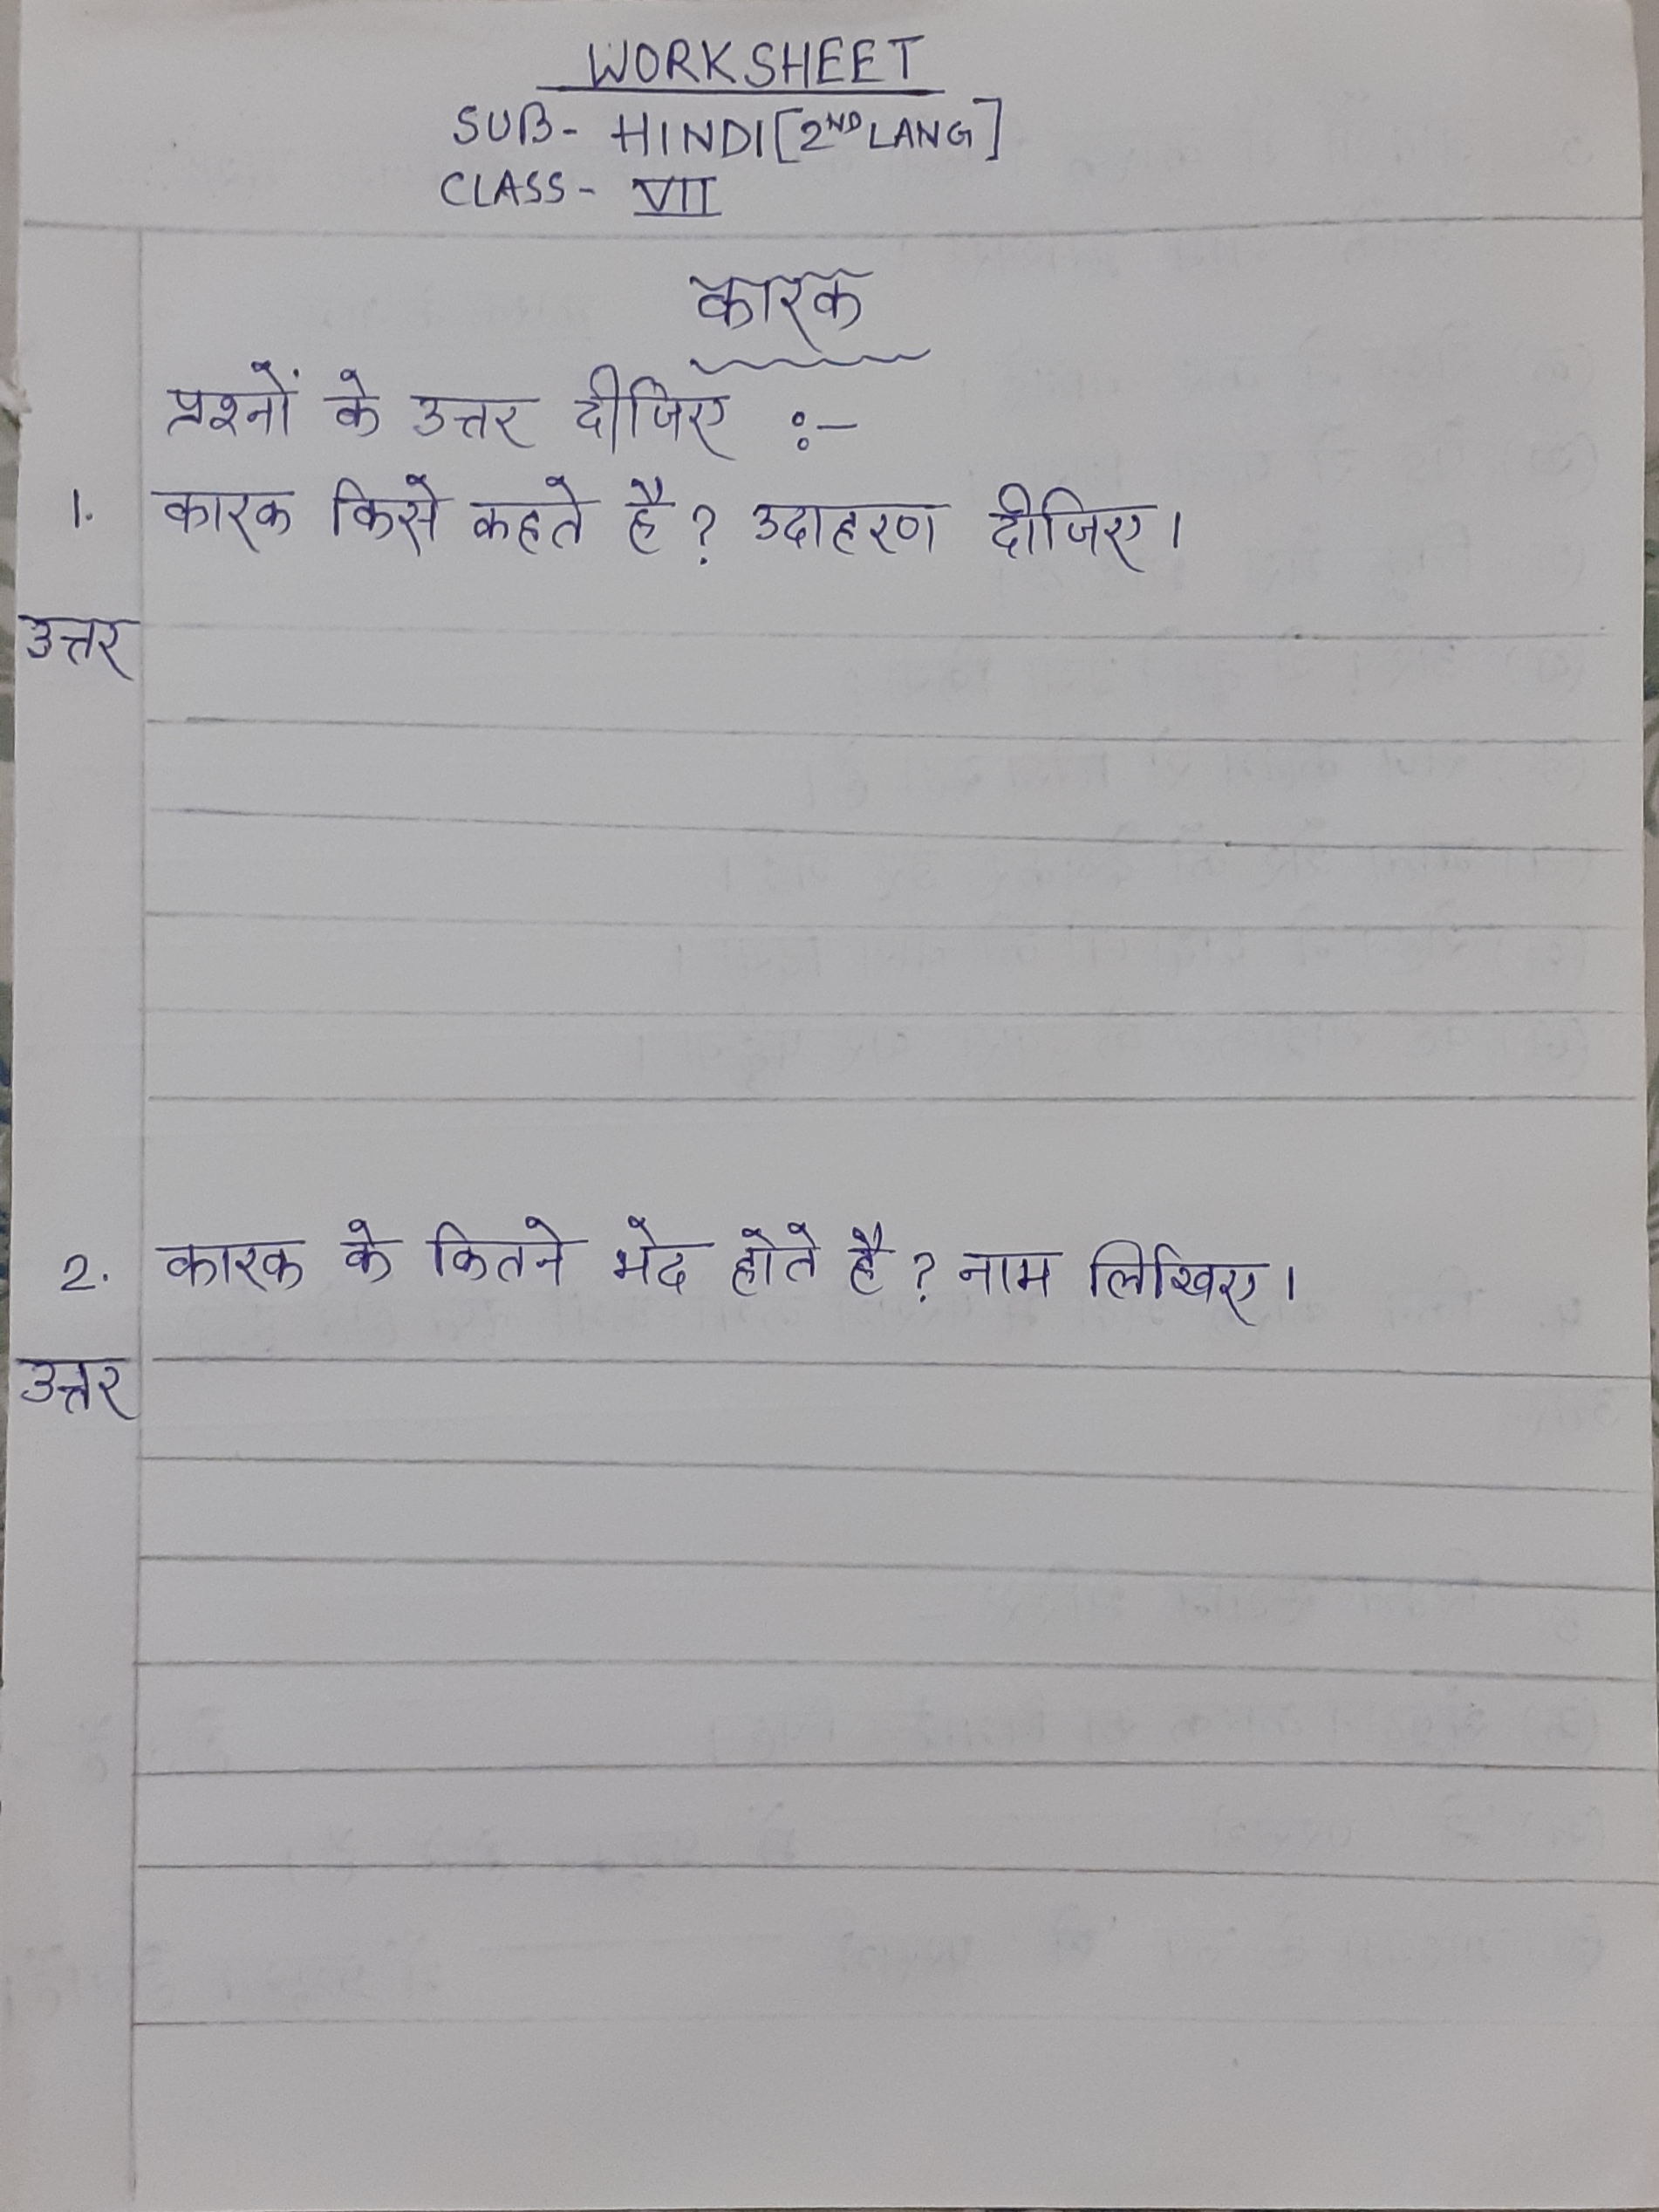 WORKSHEET
SUB- HINDI[2ND LANG]
CLASS- VII
कारक
प्रश्नों के उत्तर दीजिए :-
1. कारक किसे कहते है? उदाहरण दीजिए।
उत्तर
2. कारक के कितने भेद होते है? नाम लिखिए।
उत्तर